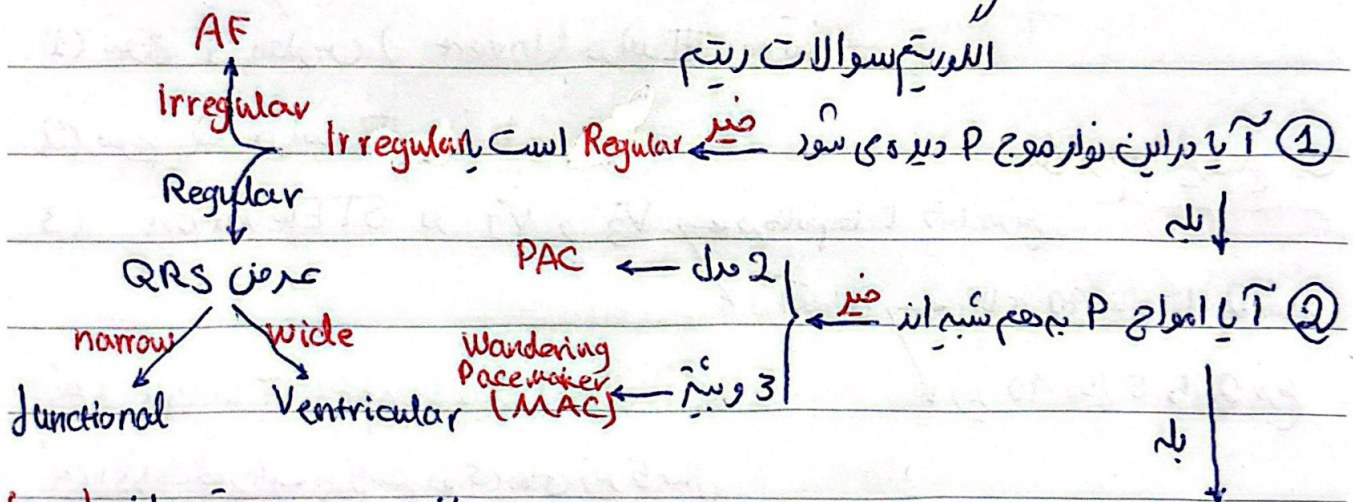 الگوریتم سوالات ریتم
① آیا در این نوار موج P دیده می شود
خیر
Regular است یا Irregular
Irregular
AF
Regular
عرض QRS
narrow
Junctional
wide
Ventricular
بله
② آیا امواج P به هم شبیه اند
خیر
2 مدل
PAC
3 و بیشتر
Wandering
Pacemaker
(MAC)
بله